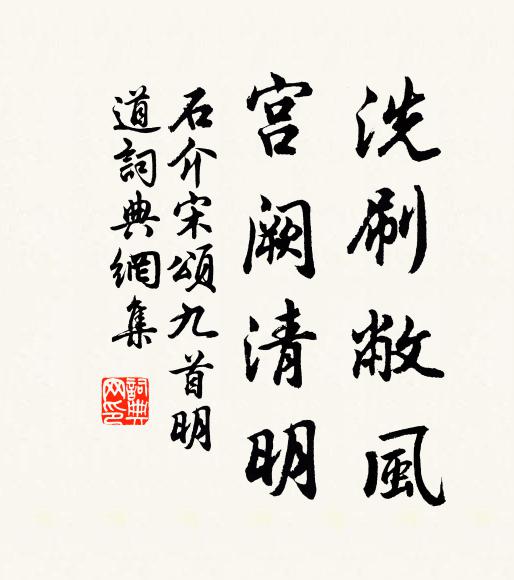 洗刷敝風
宫阙清明
石介宋頌九首明
道詞典網集
詞典網印